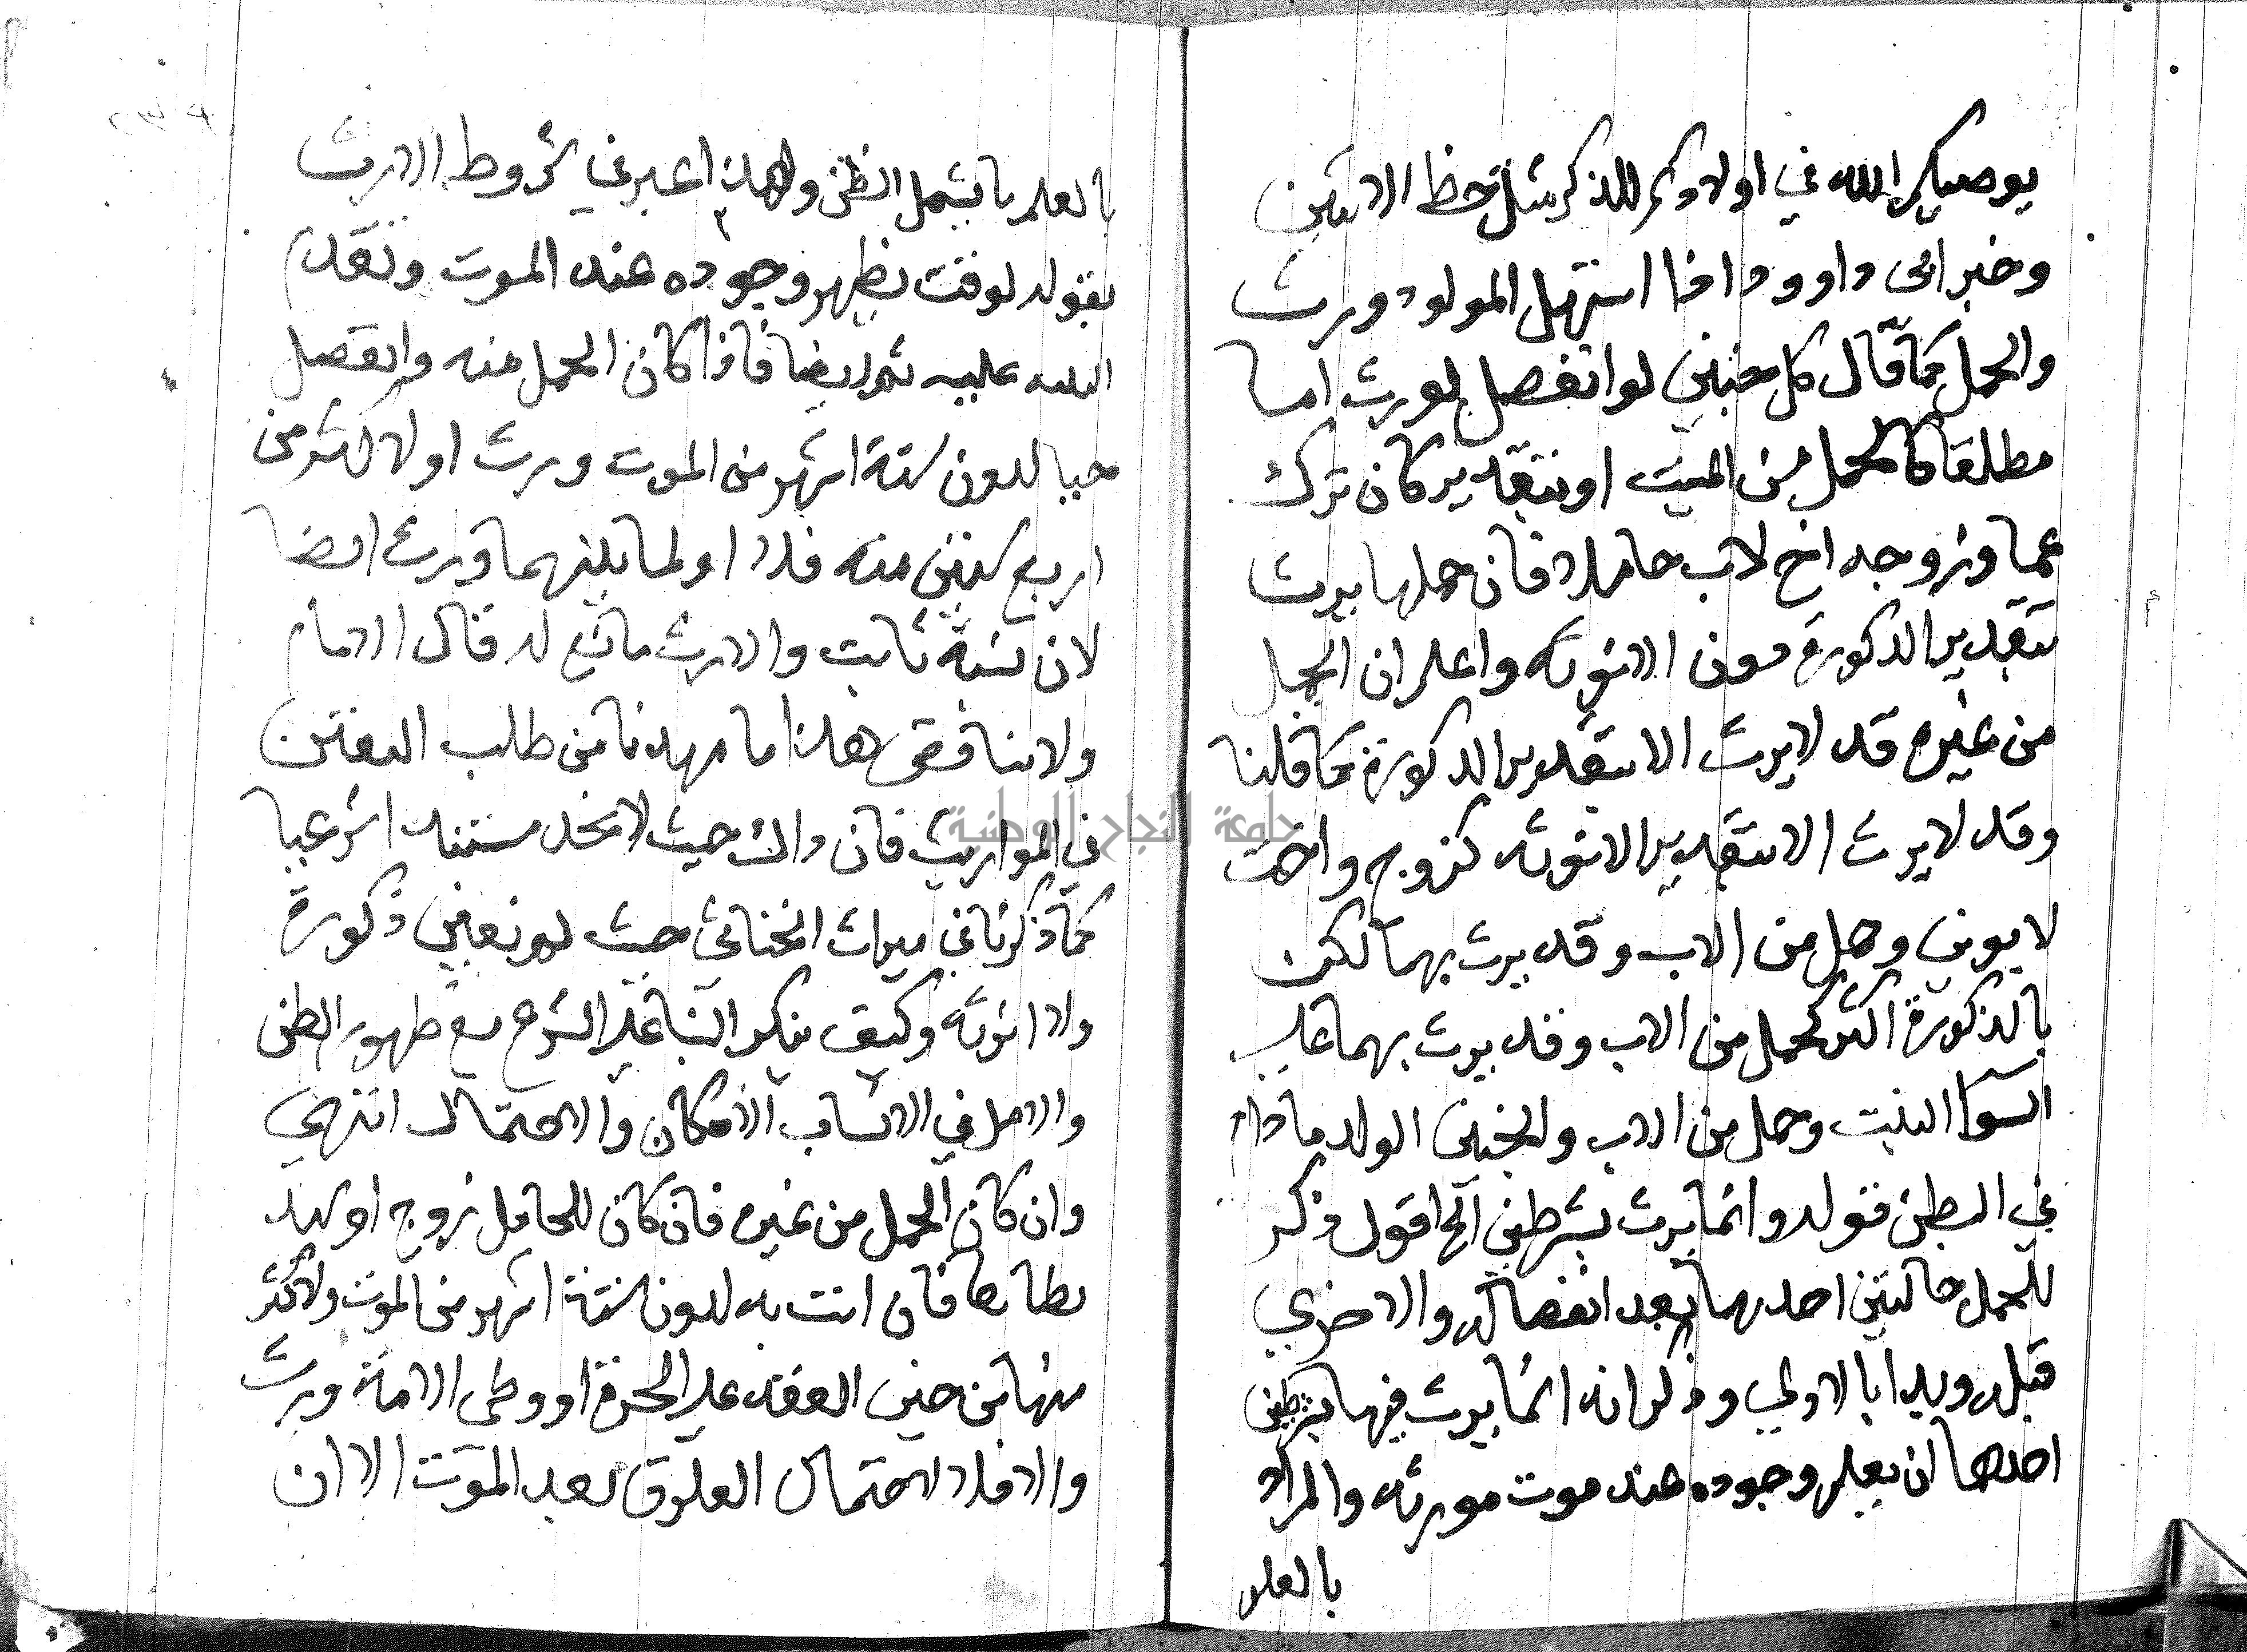 يوصيكم الله في اولادكم للذكر مثل حظ الانثيين
وخبر ابى داوود اذا استهل المولود ورث
والحمل كما قال كل جنين لو انفصل لورث اما
مطلقا كالحمل من الميت او بتقدير كان ترك
عما وزوجه اخ لاب حاملا فان حملها يرث
بتقدير الذكورة دون الانوثه واعلم ان الحمل
من غيره قد لا يرث الا بتقدير الذكورة كما قلنا
وقد لا يرث الا بتقدير الانوثه كزوج واخت
لابوين وحمل من الاب وقد يرث بهما لكن
بالذكورة اكثر كحمل من الاب وقد يرث بهما على
السوا البنت وحمل من الاب والجنين الولد ما دام
في البطن قوله وانما يرث بشرطين الخ اقول ذكر
للحمل حالتين احدهما بعد انفصاله والاخري
قبله وبدا بالاولي وذكر انه انما يرث فيها بشرطين
احدهما ان يعلم وجوده عند موت مورثه والمراد
بالعلم
بالعلم ما يشمل الظن ولهذا عبر في شروط الارث
بقوله لوقت يظهر وجوده عند الموت وتقدم
التنبيه عليه ثم ايضا فاذا كان الحمل منه وانفصل
حيا لدون ستة اشهر من الموت ورث او لاكثر من
اربع سنين منه فلا او لما بينهما ورث ايضا
لان نسبه ثابت والارث مانع له قال الامام
ولا يناقض هذا ما مهدنا من طلب اليقين
في المواريث فان ذاك حيث لا نجد مستندا شرعيا
كما ذكرنا في ميراث الخناثي حيث لم نعين ذكورة
ولا انوثه وكيف ينكر البنا على الشرع مع ظهور الظن
والاصل في الانساب الامكان والاحتمال انتهي
وان كان الحمل من غيره فان كان للحامل زوج او سيد
يطاها فان اتت به لدون ستة اشهر من الموت ولاكثر
منها من حين العقد على الحرة او وطى الامة ورث
والا فلا لاحتمال العلوق بعد الموت الا ان
جامعة النجاح الوطنية